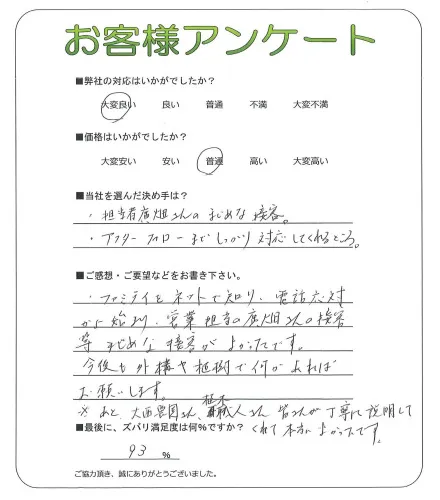 お客様アンケート
■弊社の対応はいかがでしたか?
大変良い 良い 普通 不満 大変不満
■価格はいかがでしたか?
大変安い 安い 普通 高い 大変高い
■当社を選んだ決め手は?
・担当者廣畑さんのまじめな接客。
・アフターフォローまでしっかり対応してくれるところ。
■ご感想・ご要望などをお書き下さい。
・ファミティをネットで知り、電話応対
から始まり、営業担当の廣畑さんの接客
等まじめな接客がよかったです。
今後も外構や植樹で何かあれば
お願いします。
※あと、大西農園さん、植木職人さん 皆さんが丁寧に説明して
くれて本当によかったです。
■最後に、ズバリ満足度は何%ですか?
93 %
ご協力頂き、誠にありがとうございました。